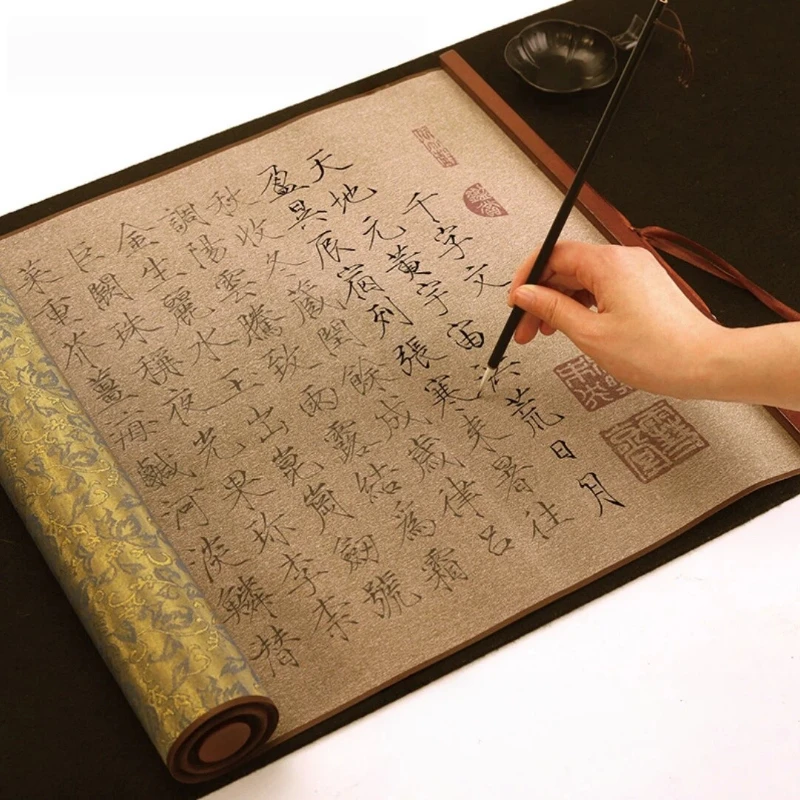 千字文
天地元黄宇宙洪荒日月
盈昃辰宿列張寒来暑往
秋收冬蔵閏餘成歳律吕
調陽雲騰致雨露結為霜
金生麗水玉出崑崗劔號
巨闕珠撰夜光果珍李柰
菜重芥薑海鹹河淡鱗潜